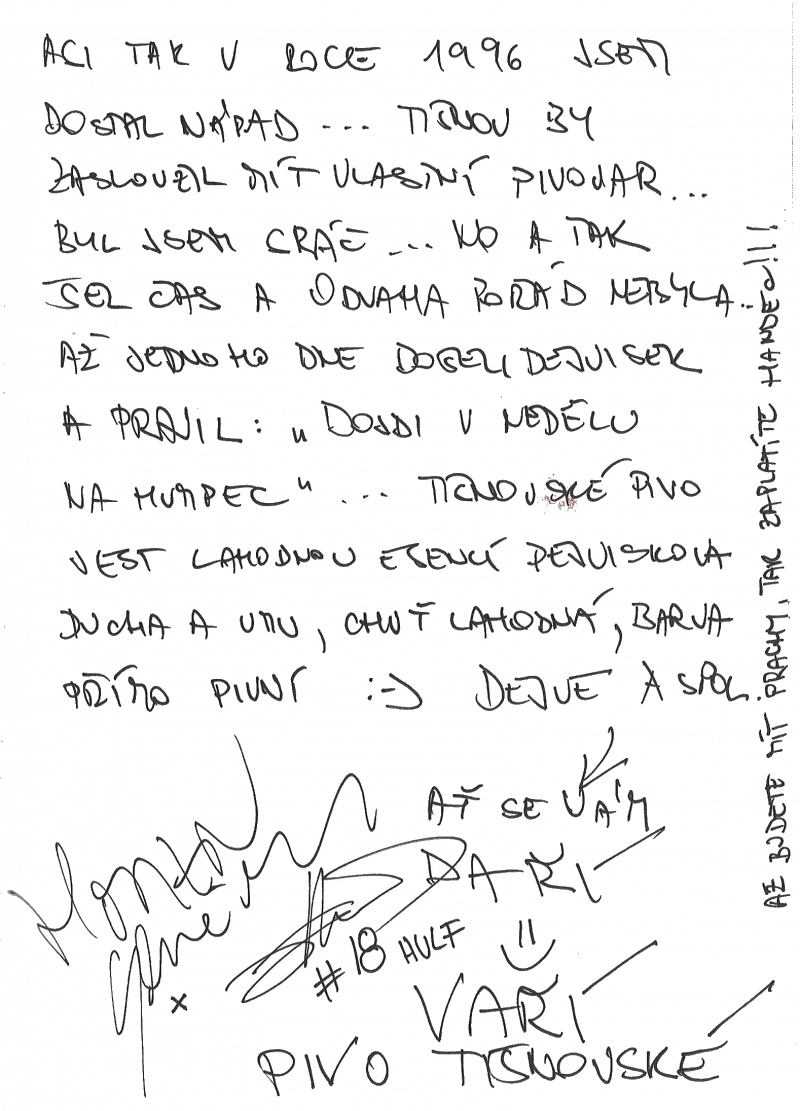 ACI TAK V ROCE 1996 JSEM
DOSTAL NÁPAD ... TIŠNOV BY
ZASLOUŽIL MÍT VLASTNÍ PIVOVAR...
BYL JSEM CRÁC ... NO A TAK
ŠEL ČAS A ODVAHA POŘÁD NEBYLA..
AŽ JEDNOHO DNE DOBĚHL DEJVÍSEK
A PRAVIL: „DOJDI V NEDĚLU
NA HUMPEC" ... TIŠNOVSKÉ PIVO
JEST LAHODNOU ESENCÍ DEJVISKOVA
DUCHA A UMU, CHUŤ LAHODNÁ, BARVA
PŘÍMO PIVNÍ :-) DEJVE A SPOL.
AŤ SE VÁM
DAŘÍ
#18 HULF
VAŘÍ
PIVO TIŠNOVSKÉ
AŽ BUDETE MÍT PRACHY, TAK ZAPLATÍTE HANDEL!!!